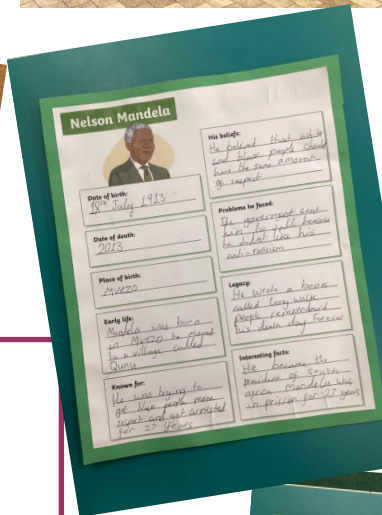 Nelson Mandela
Date of birth:
18th July 1913
Date of death:
2013
Place of birth:
Mvezo
Early life:
Mandela was born
in Mvezo to moved
to a village called
Qunu
Known for:
He was trying to
get black people more
respect and got arrested
for 27 years
His beliefs:
He belived that white
and black people should
have the same amount
of respect
Problems he faced:
The goverment sent
him to jail because
he didnt like his
anti-racism
Legacy:
He wrote a book
called Long walk
people remembered
his death day forever
Interesting facts:
He became the
President of south
africa Mandela was
in prison for 27 years